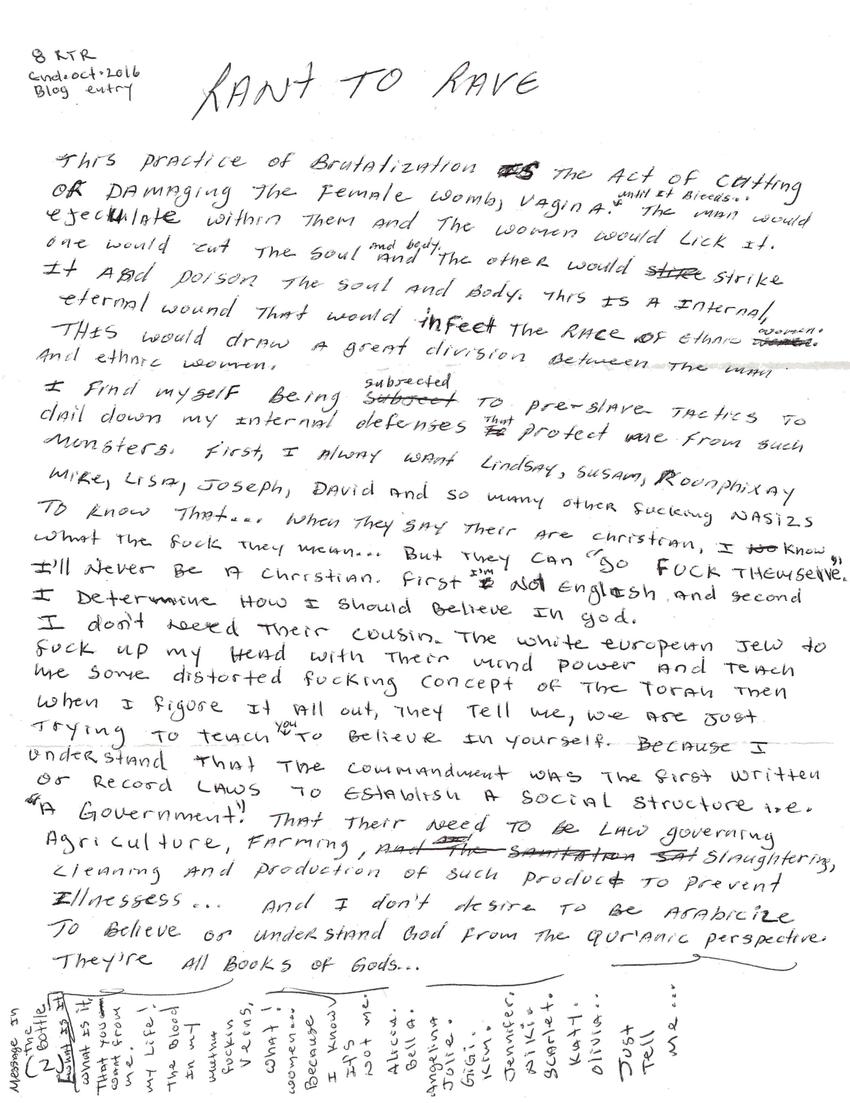 8 RTR
End.oct.2016
Blog entry
RANT TO RAVE
This practice of Brutalization is The Act of Cutting
OR DAMAging The Female womb, vagina. until it Bleeds... The man would
ejeculate within Them And The women would Lick It.
one would cut The Soul and body. And The other would strike strike
It And poison The Soul And Body. This Is A Internal,
eternal wound That would infect The RACE of Ethnic women.
THIS would draw A great division Between The man
And ethnic women.
I find myself Being subjected Subject To pre-slave TACTICS To
dail down my Internal defenses That protect me from such
Monsters. First, I Alway want Lindsay, Susam, Rounphixay
Mike, Lisa, Joseph, David And so many other fucking NASIZS
To know That... when They say Their are christian, I no know
what The fuck They mean... But They can "go FUCK THemselve."
I'll Never Be A Christian. First I'm Not English And second
I Determine How I should Believe In god.
I don't need Their cousin. The white european Jew to
fuck up my Head with Their mind power And Teach
me some distorted fucking concept of The Torah Then
when I figure It All out, They Tell me, we Are Just
Trying To teach you To Believe In yourself. Because I
understand That The commandment was The first written
or Record Laws To Establish A social Structure i.e.
"A Government". That Their Need To be Law governing
Agriculture, Farming, And The Sanitation and Slaughtering,
cleaning And production of such product To prevent
Illnessess... And I don't desire To Be Arabicize
To Believe or understand God From The Qur'anic perspective.
They're All Books of Gods...
Message In
The Bottle
(2)
what is it
what is it,
That you
want from
me.
my Life!
The Blood
In my
mutha
fuckin
veins,
what!
women...
Because
I know
It's
not me.
Alicia.
Bella.
Angelina
Jolie.
GiGi.
Kim.
Jennifer.
Niki.
Scarlet.
Katy.
Olivia...
Just
Tell
me...